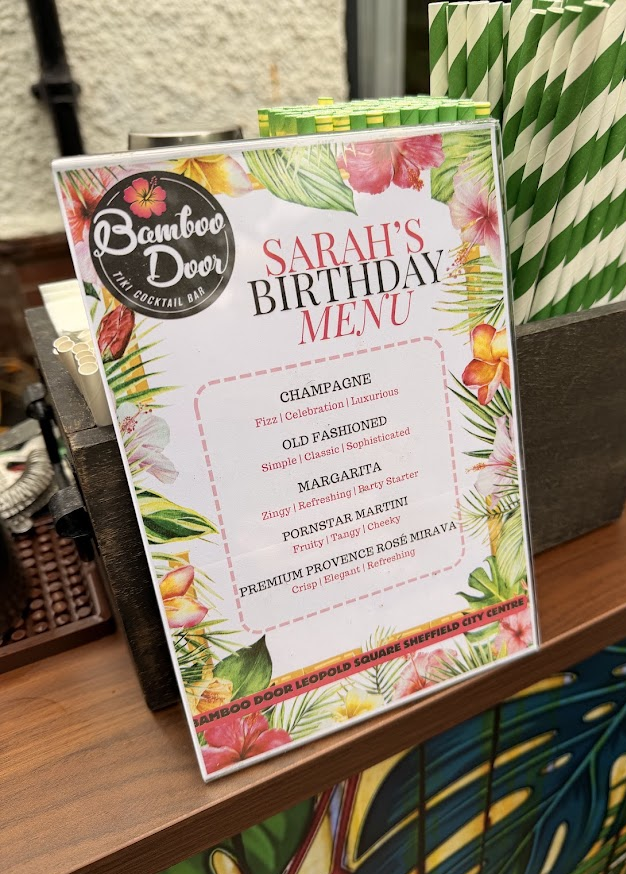 Bamboo
Door
TIKI COCKTAIL BAR
SARAH'S
BIRTHDAY
MENU
CHAMPAGNE
Fizz | Celebration | Luxurious
OLD FASHIONED
Simple | Classic | Sophisticated
MARGARITA
Zingy | Refreshing | Barty Starter
PORNSTAR MARTINI
Fruity | Tangy | Cheeky
PREMIUM PROVENCE ROSÉ MIRAVA
Crisp | Elegant | Refreshing
BAMBOO DOOR LEOPOLD SQUARE SHEFFIELD CITY CENTRE